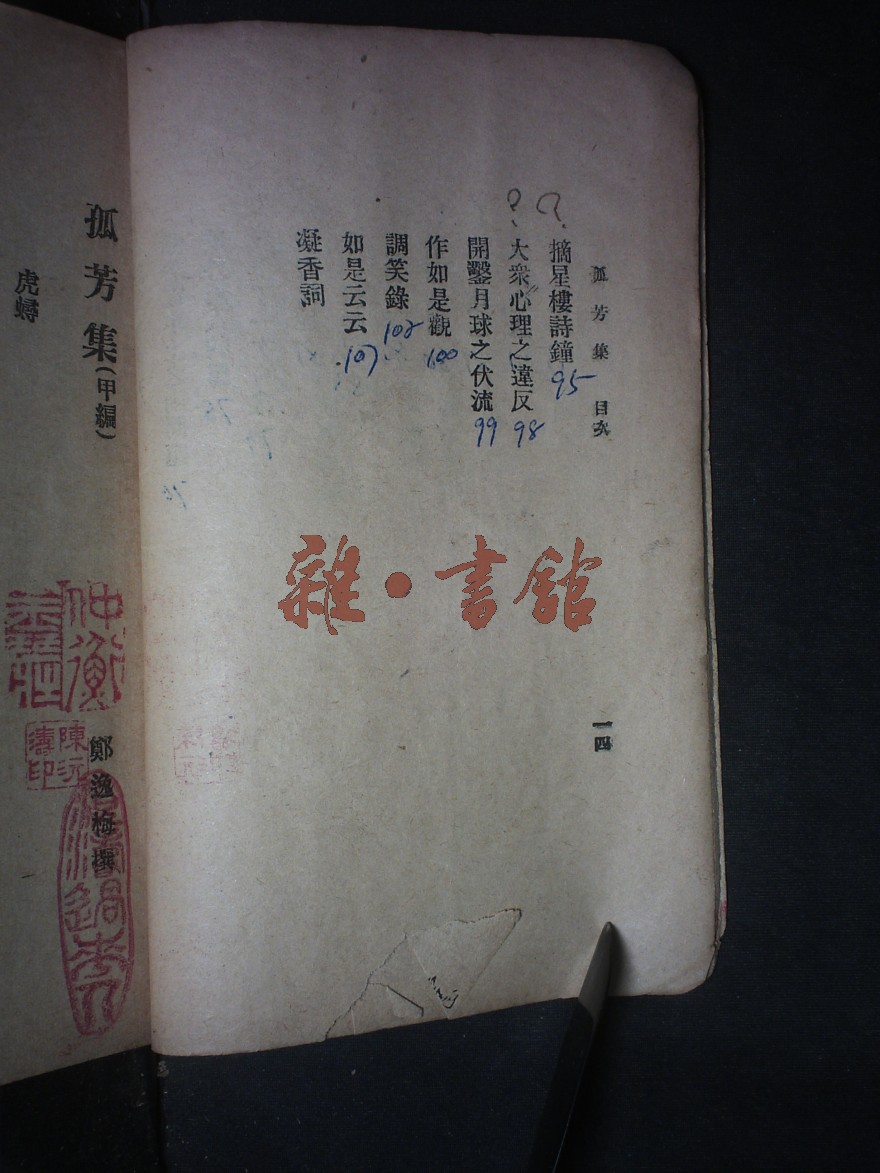 孤芳集 目次 一四
摘星樓詩鐘 95
大衆心理之違反 98
開鑿月球之伏流 99
作如是觀 100
調笑錄 102
如是云云 107
凝香詞
雜·書館
孤芳集(甲編)
鄭逸梅撰
虎蟳
仲衡
陳沅
濤印